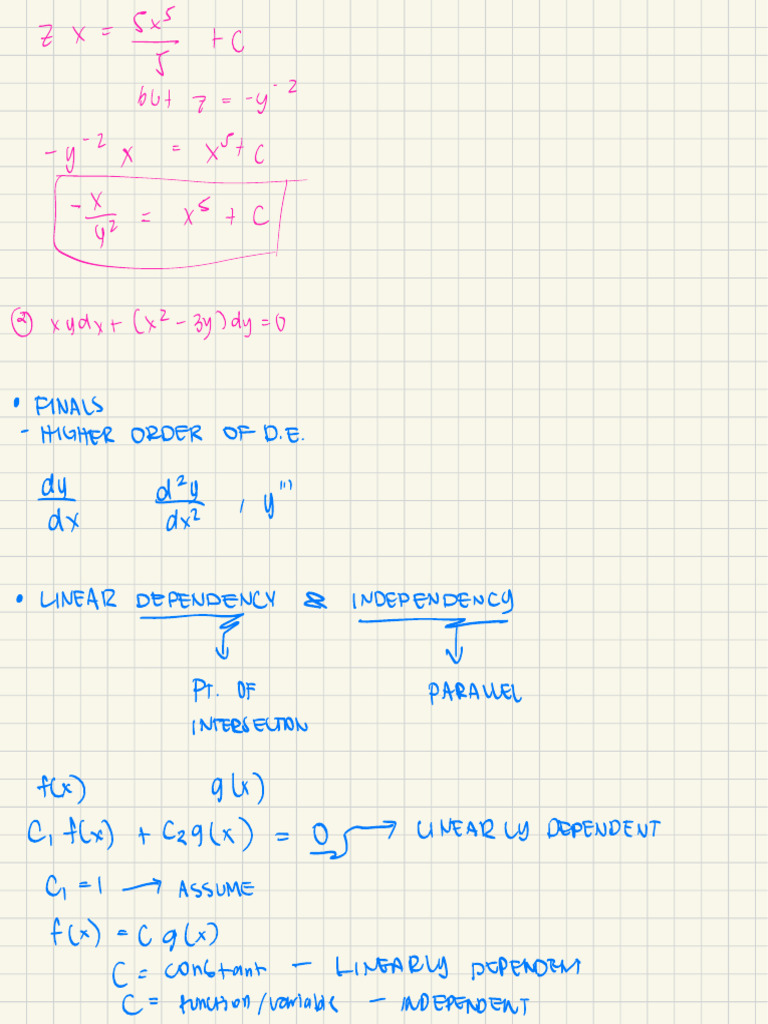 z x = 5x⁵/5 + C
but z = -y⁻²
-y⁻² x = x⁵ + C
-x/y² = x⁵ + C
② xydx + (x² - 3y)dy = 0
• FINALS
- HIGHER ORDER OF D.E.
dy/dx d²y/dx² , y'''
• LINEAR DEPENDENCY & INDEPENDENCY
PT. OF PARALLEL
INTERSECTION
f(x) g(x)
C₁ f(x) + C₂ g(x) = 0 → LINEARLY DEPENDENT
C₁ = 1 → ASSUME
f(x) = C g(x)
C = constant - LINEARLY DEPENDENT
C = function/variable - INDEPENDENT